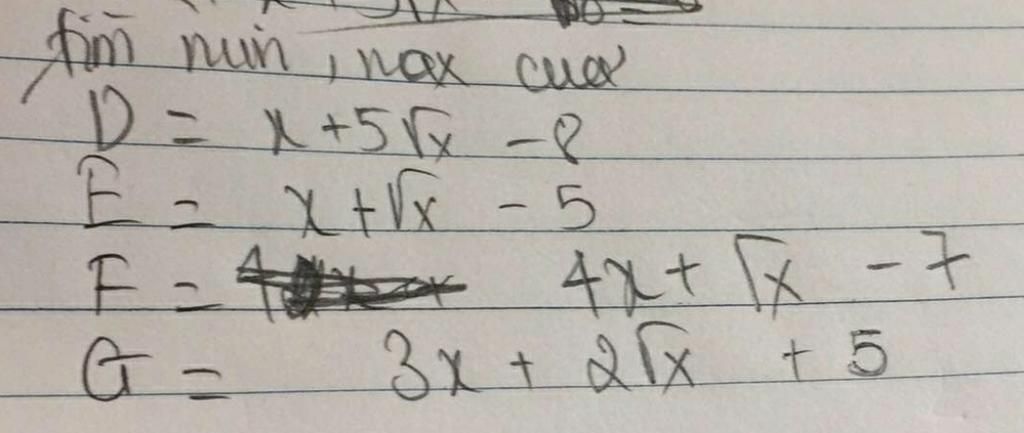 Tìm min, max của
D = x + 5√x - 8
E = x + √x - 5
F = 4x + √x - 7
G = 3x + 2√x + 5